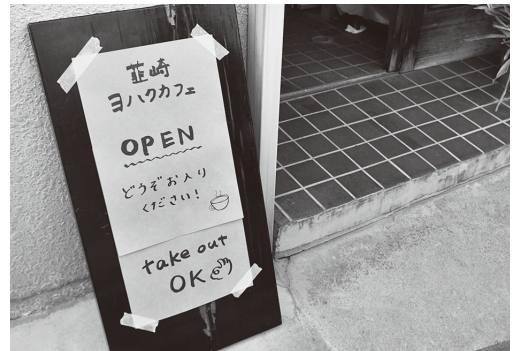 韮崎
ヨハクカフェ
OPEN
どうぞお入り
ください!
take out
OK